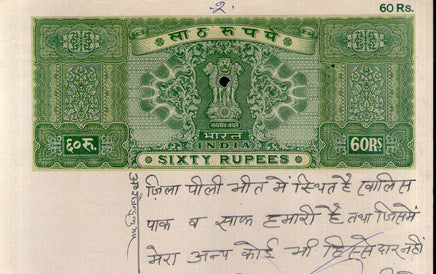 -2-
60 Rs.
साठ रूपये
सत्यमेव जयते
भारत
INDIA
६०रु.
60RS
SIXTY RUPEES
ज़िला पीलीभीत में स्थित है खालिस
पाक व साफ हमारी है तथा जिसमें
मेरा अन्य कोई भी हिस्सेदार नहीं